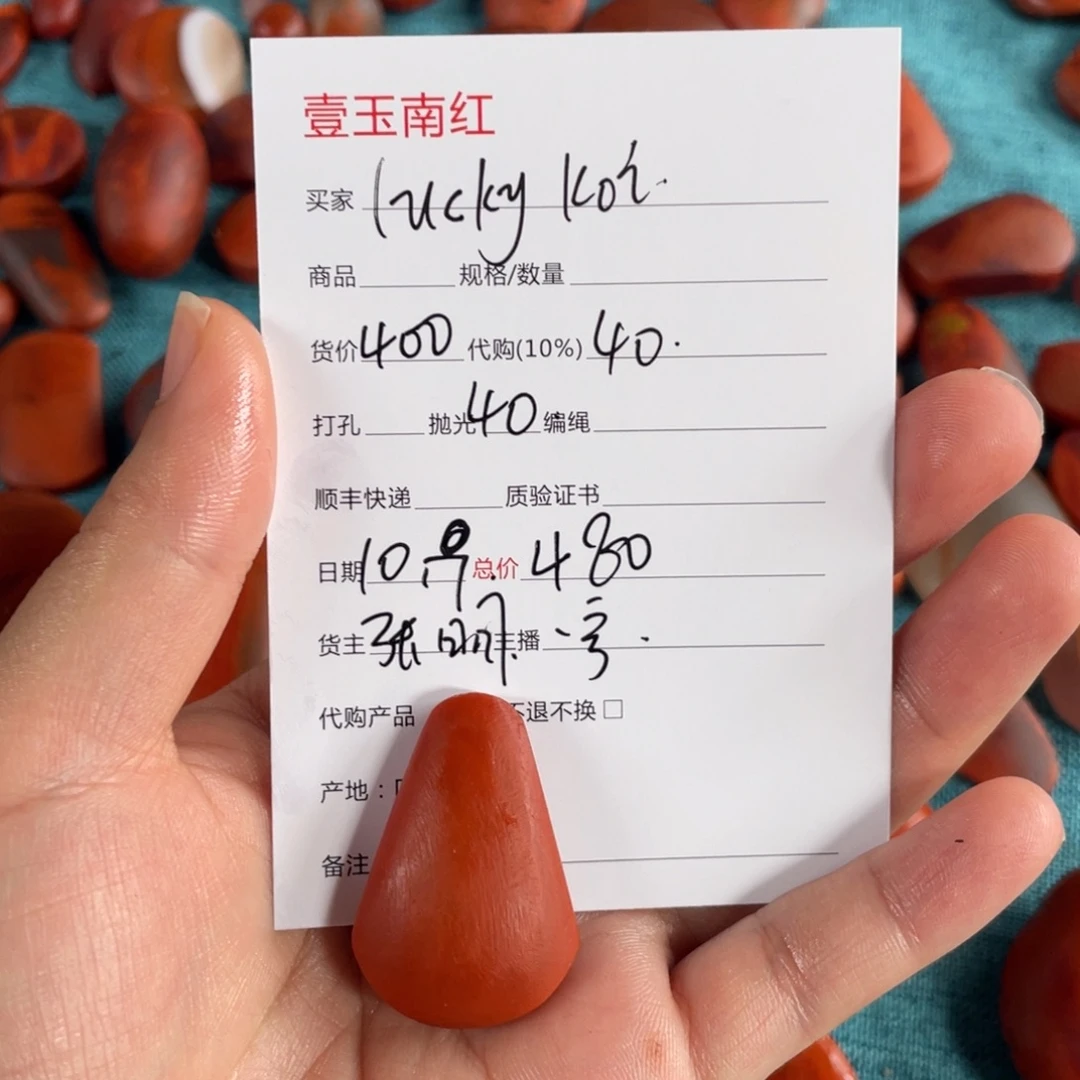 壹玉南红
买家 lucky koi.
商品 规格/数量
货价 400 代购(10%) 40.
打孔 抛光 40 编绳
顺丰快递 质验证书
日期 10号. 总价 480
货主 张明. 主播
代购产品 不退不换 □
产地：
备注